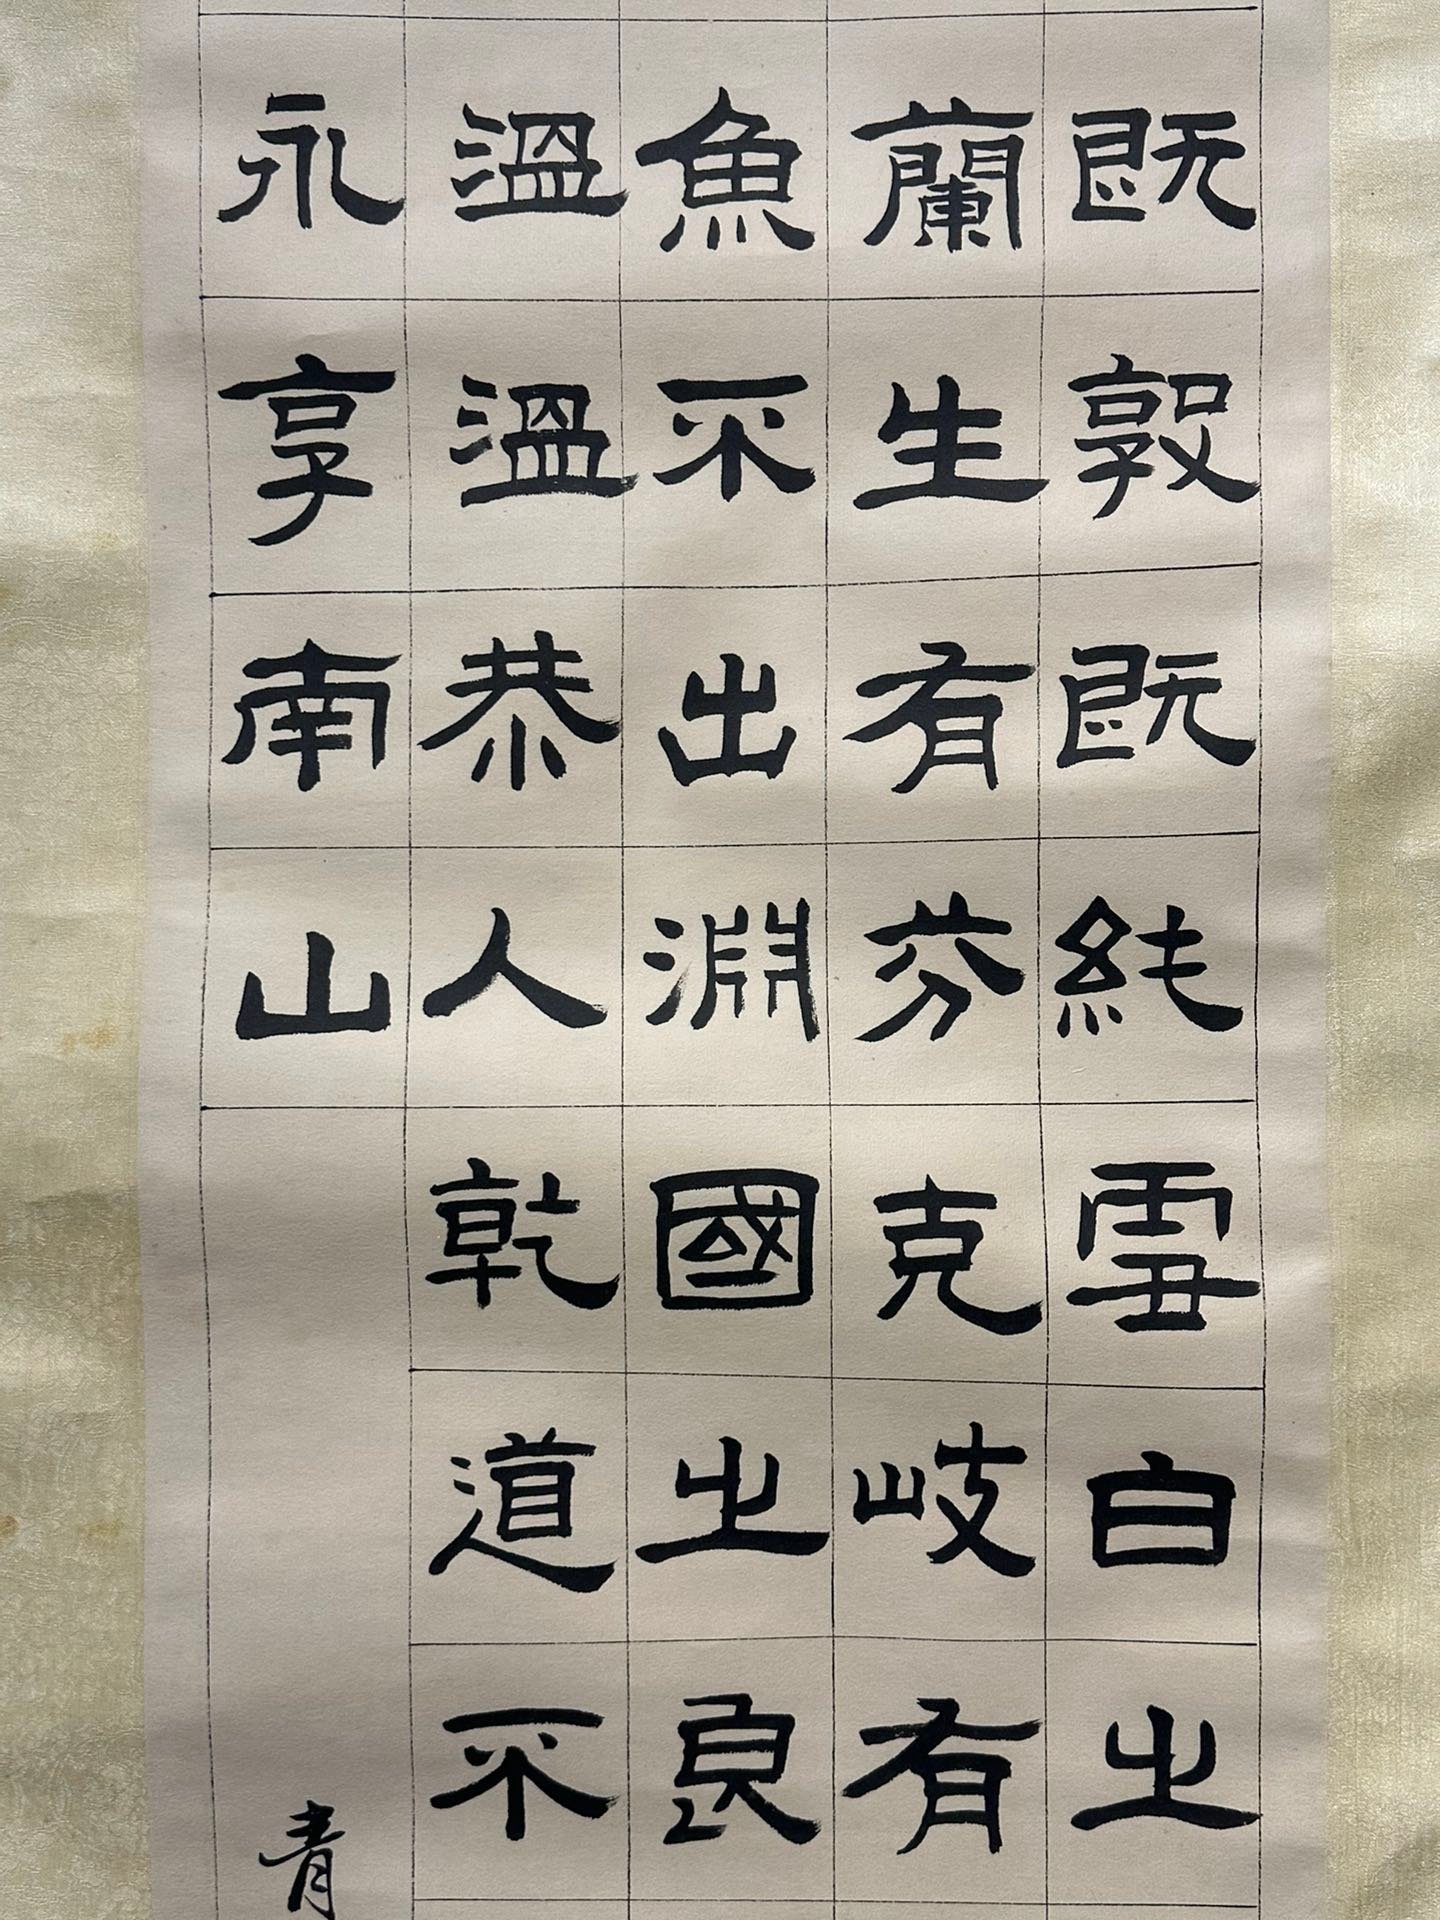 既敦既純雪白之
蘭生有芬克岐有
魚不出淵國之良
溫溫恭人乾道不
永享南山
青